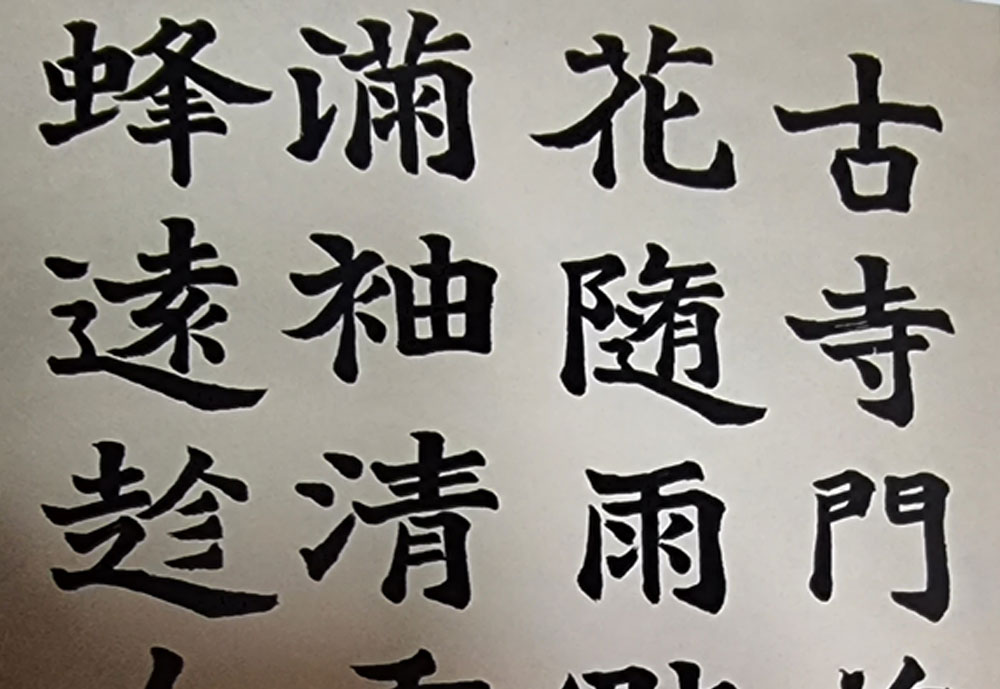 古寺門
花隨雨
滿袖清
蜂遠趁